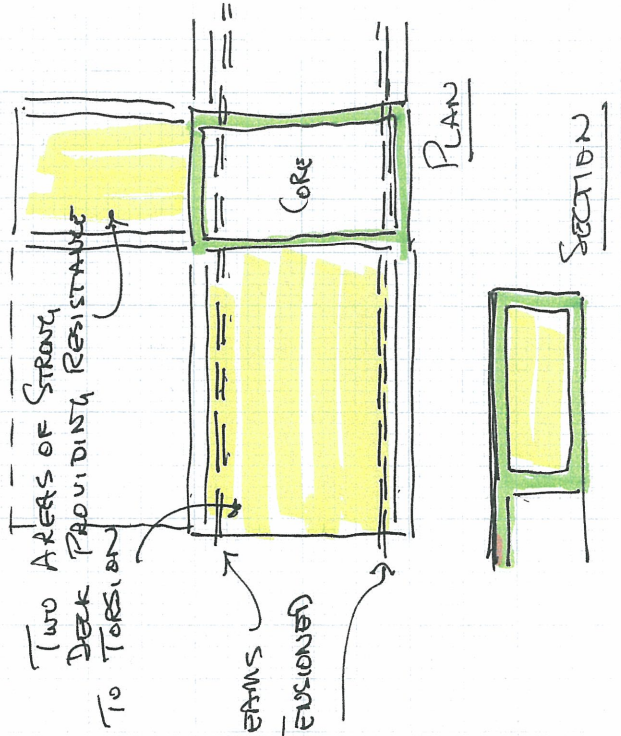 TWO AREAS OF STRONG
DECK PROVIDING RESISTANCE
TO TORSION
EAMS
ENSIONED
CORE
PLAN
SECTION